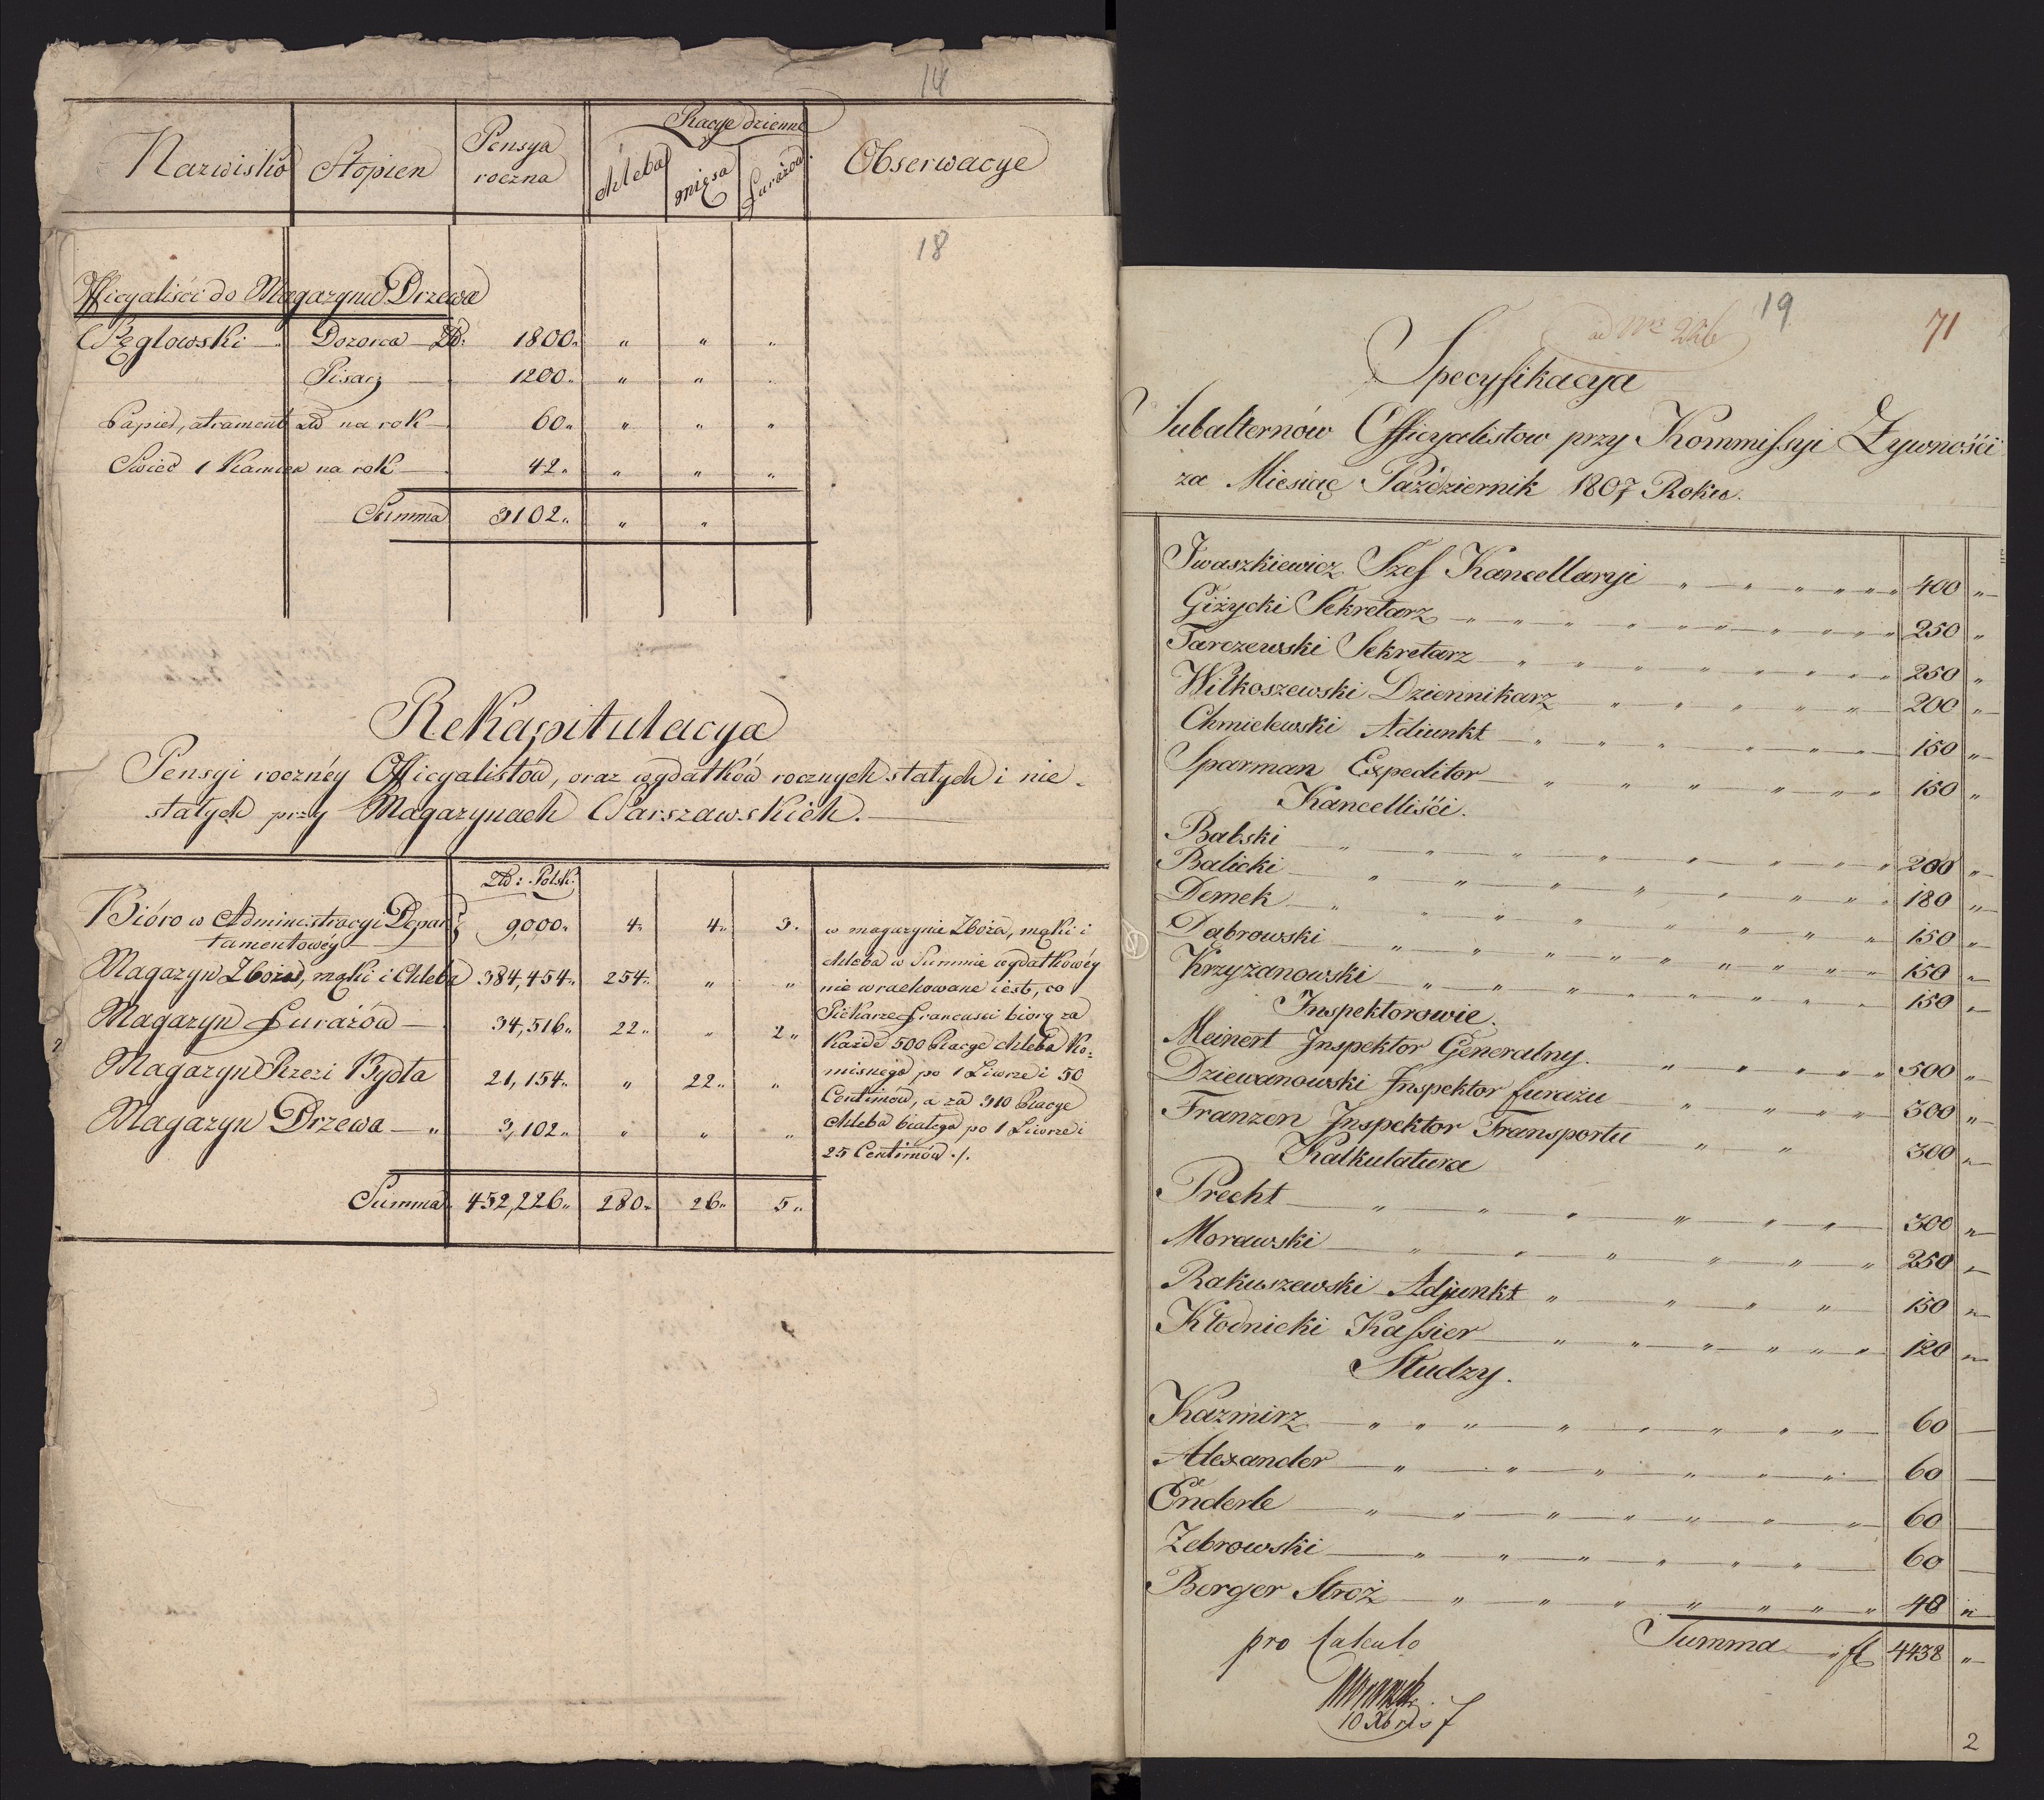 14
Nazwisko Stopien Pensya roczna Racye dzienne Obserwacye
chleba mięsa Furażów
18
Officyaliści do Magazynu Drzewa
Węglowski Dozorca Zł: 1800 " " "
Pisarz 1200 " " "
Papier, atrament zł na rok 60 " " "
Świec 1 Kamień na rok 42 " " "
Summa 3102 " "
Rekapitulacya
Pensyi rocznéy Officyalistów, oraz wydatków rocznych stałych i nie-
stałych przy Magazynach Warszawskich.
Zło: Polsk:
Bióro w Administracyi Depar
tamentowéy 9,000 4 4 3
Magazyn Zboża, mąki i Chleba 384,454 254 " "
Magazyn Furażów 34,516 22 " 2
Magazyn Rzezi Bydła 21,154 " 22 "
Magazyn Drzewa 3,102 " " "
Summa 452,226 280 26 5
w magazynie Zboża, mąki i
chleba w Summie wydatkowéy
nie wrachowane iest, co
Piekarze Francuscy biorą za
każde 500 Racye chleba Ko-
misnego po 1 Liwrze i 50
Centimów, a za 310 Racye
chleba białego po 1 Liwrze i
25 Centimów ./.
19
71
ad Nr
Specyfikacya
Subalternów Officyalistow przy Kommissyi Żywnośći
za Miesiąc Październik 1807 Roku.
Iwaszkiewicz Szef Kancellaryi 400 "
Giżycki Sekretarz 250 "
Tarczewski Sekretarz 250 "
Wilkoszewski Dziennikarz 200 "
Chmielewski Adiunkt 150 "
Sparman Expeditor 150 "
Kancelliśći.
Babski 200 "
Balicki 180 "
Demek 150 "
Dąbrowski 150 "
Krzyżanowski 150 "
Inspektorowie.
Meinert Inspektor Generalny. 500 "
Dziewanowski Inspektor furażu 300 "
Franzen Inspektor Transportu 300 "
Kalkulatura
Precht 300 "
Morawski 250 "
Rakuszewski Adjunkt 150 "
Kłodnicki Kassier 120 "
Studzy.
Kazmirz 60
Alexander 60
Enderle 60
Zebrowski 60
Berger Stroż 48 "
Summa fl 4438 "
pro Calculo
10 Xbris 7
2